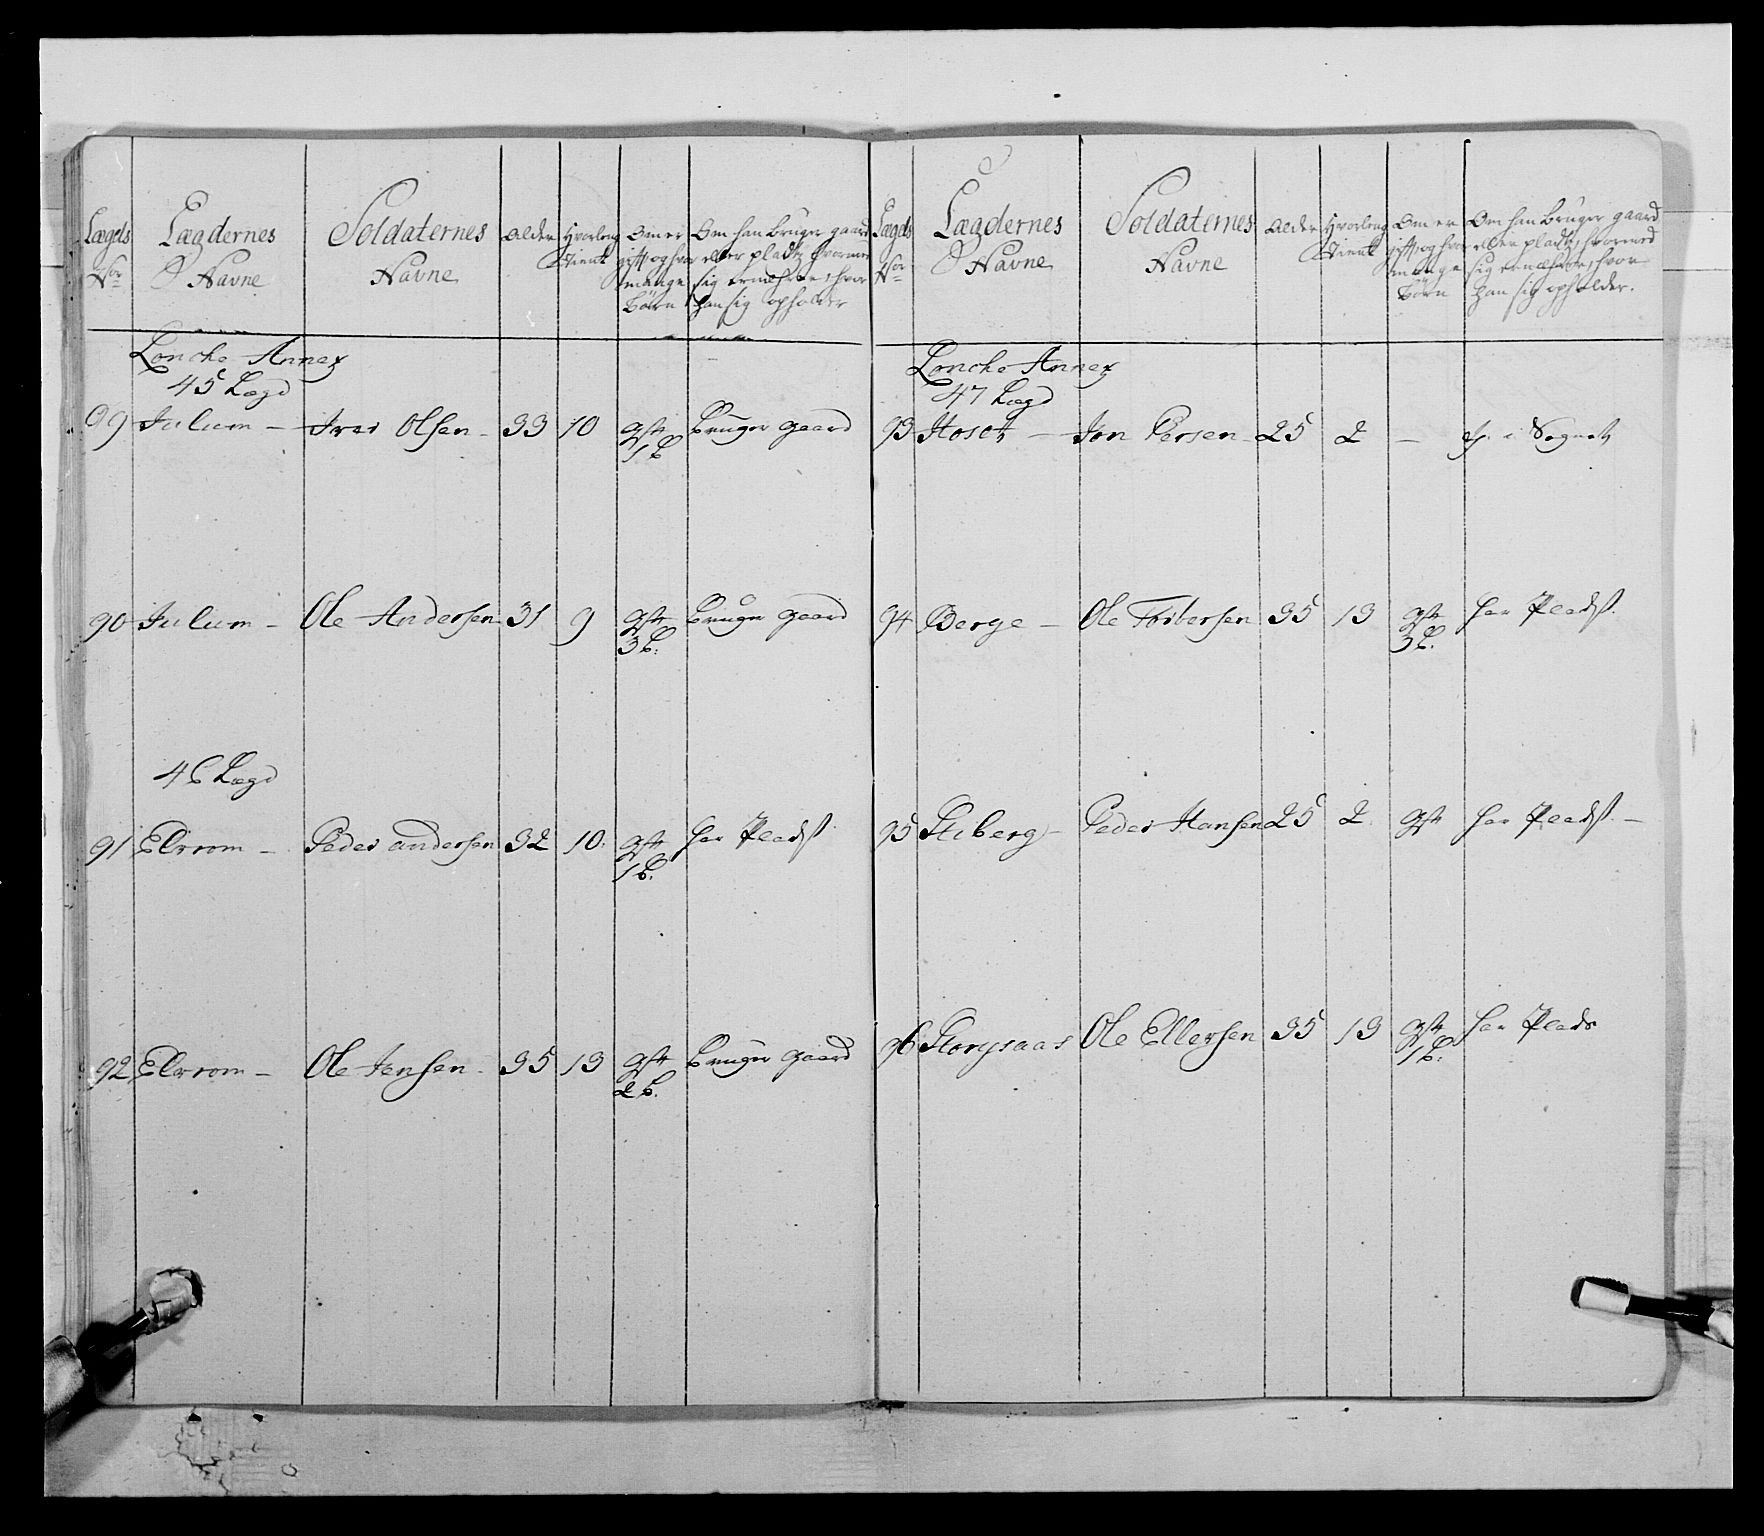 Lægds Nor
Lægdernes Navne
Soldaternes Navne
Alder
Hvorleng Tient
Om er gift, og hvor mange Börn
Om han bruger gaard eller pladtz, hvormed sig ernæhrer, hvor han sig opholder
Loncke Annex
45 Lægd
89 Julum - Iver Olsen - 33 10 gift 1 b bruger gaard
90 Julum - Ole Andersen 31 9 gift 3 b: bruger gaard
46 Lægd
91 Elvrom - Peder Andersen 32 10. gift 1 b. har Pladst
92 Elvrom - Ole Jensen - 35 13 gift 2 b. bruger gaard
Lægds Nor
Lægdernes Navne
Soldaternes Navne
Alder
Hvorleng Tient
Om er gift, og hvor mange Börn
Om han bruger gaard eller pladtz, hvormed sig ernæhrer, hvor han sig opholder.
Loncke Annex
47 Lægd
93 Hoset - Jon Persen - 25 2 - i Sognet
94 Berge - Ole Torbersen 35 13 gift 3 b. har Pladst.
95 Stuberg - Peder Hansen 25 2 gift har Pladst. -
96 Storaas Ole Ellefsen 35 13 gift 1 b: har Plads